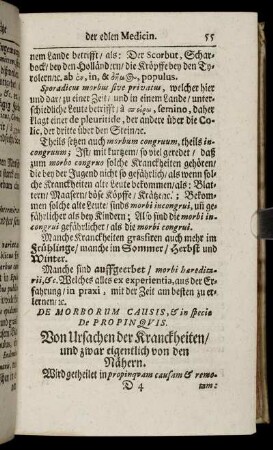 der edlen Medicin. 55
nem Lande betrifft/ als: Der Scorbut, Schar-
bock/ bey den Holländern/ die Kröpffe bey den Ty-
rolern/ɛc. ab ἐν, in, & δῆμος, populus.
Sporadicus morbus sive privatus, welcher hier
und dar/ zu einer Zeit/ und in einem Lande/ unter-
schiedliche Leute betrifft/ à σπείρω, semino, daher
klaget einer de pleuritide, der andere über die Co-
lic, der dritte über den Stein/ɛc.
Theils setzen auch morbum congruum, theils in-
congruum; Ist/ mit kurtzem/ so viel geredet/ daß
zum morbo congruo solche Kranckheiten gehören/
die bey der Jugend nicht so gefährlich/ als wenn solche
Kranckheiten alte Leute bekommen/ als: Blat-
tern/ Maasern/ böse Köpffe/ Krätze/ɛc.; Bekom-
men solche alte Leute/ sind es morbi incongrui, und
gefährlicher als bey Kindern; Also sind die morbi in-
congrui gefährlicher/ als die morbi congrui.
Manche Kranckheiten grassiren auch mehr im
Frühlinge/ manche im Sommer/ Herbst und
Winter.
Manche sind auffgeerbet/ morbi heredita-
rii, &c. Welches alles ex experientia, aus der Er-
fahrung/ in praxi, mit der Zeit am besten zu er-
lernen/ɛc.
DE MORBORUM CAUSIS, & in specie
De PROPINQVIS.
Von Ursachen der Kranckheiten/
und zwar eigentlich von den
Nähern.
Wird getheilet in propinquam causam & remo-
D 4 tam: